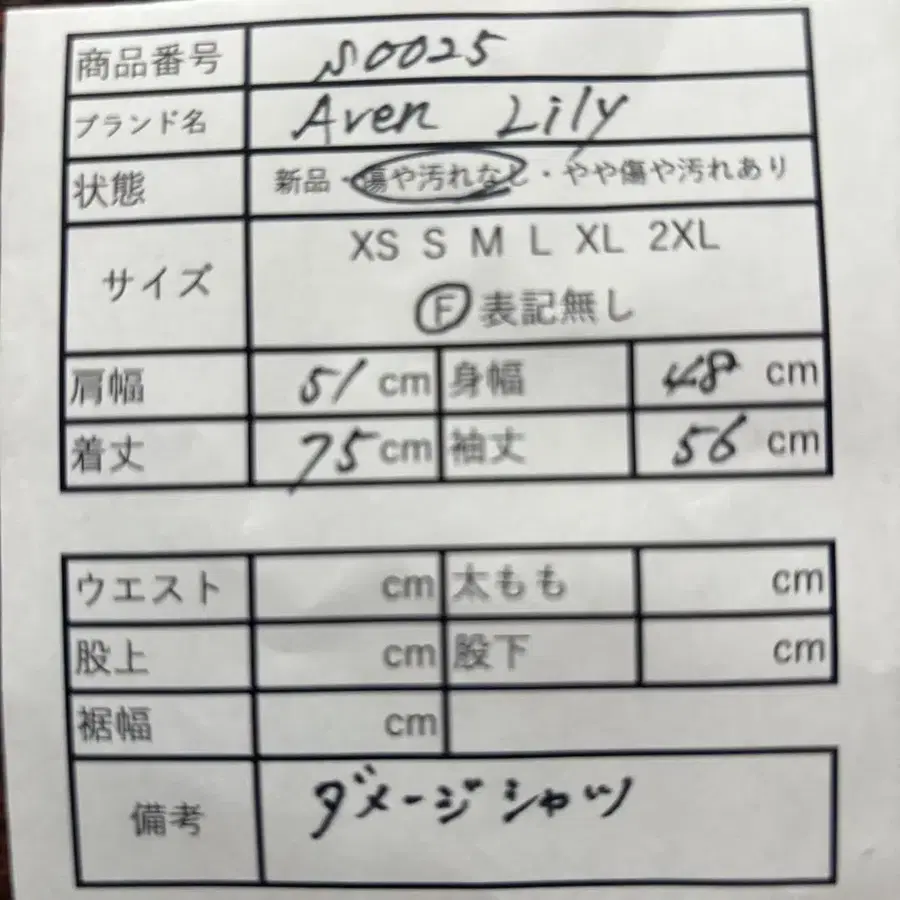 商品番号 S0025
ブランド名 Aven Lily
状態 新品・傷や汚れなし・やや傷や汚れあり
XS S M L XL 2XL
サイズ
F 表記無し
肩幅 51 cm 身幅 48 cm
着丈 75 cm 袖丈 56 cm
ウエスト cm 太もも cm
股上 cm 股下 cm
裾幅 cm
備考 ダメージシャツ